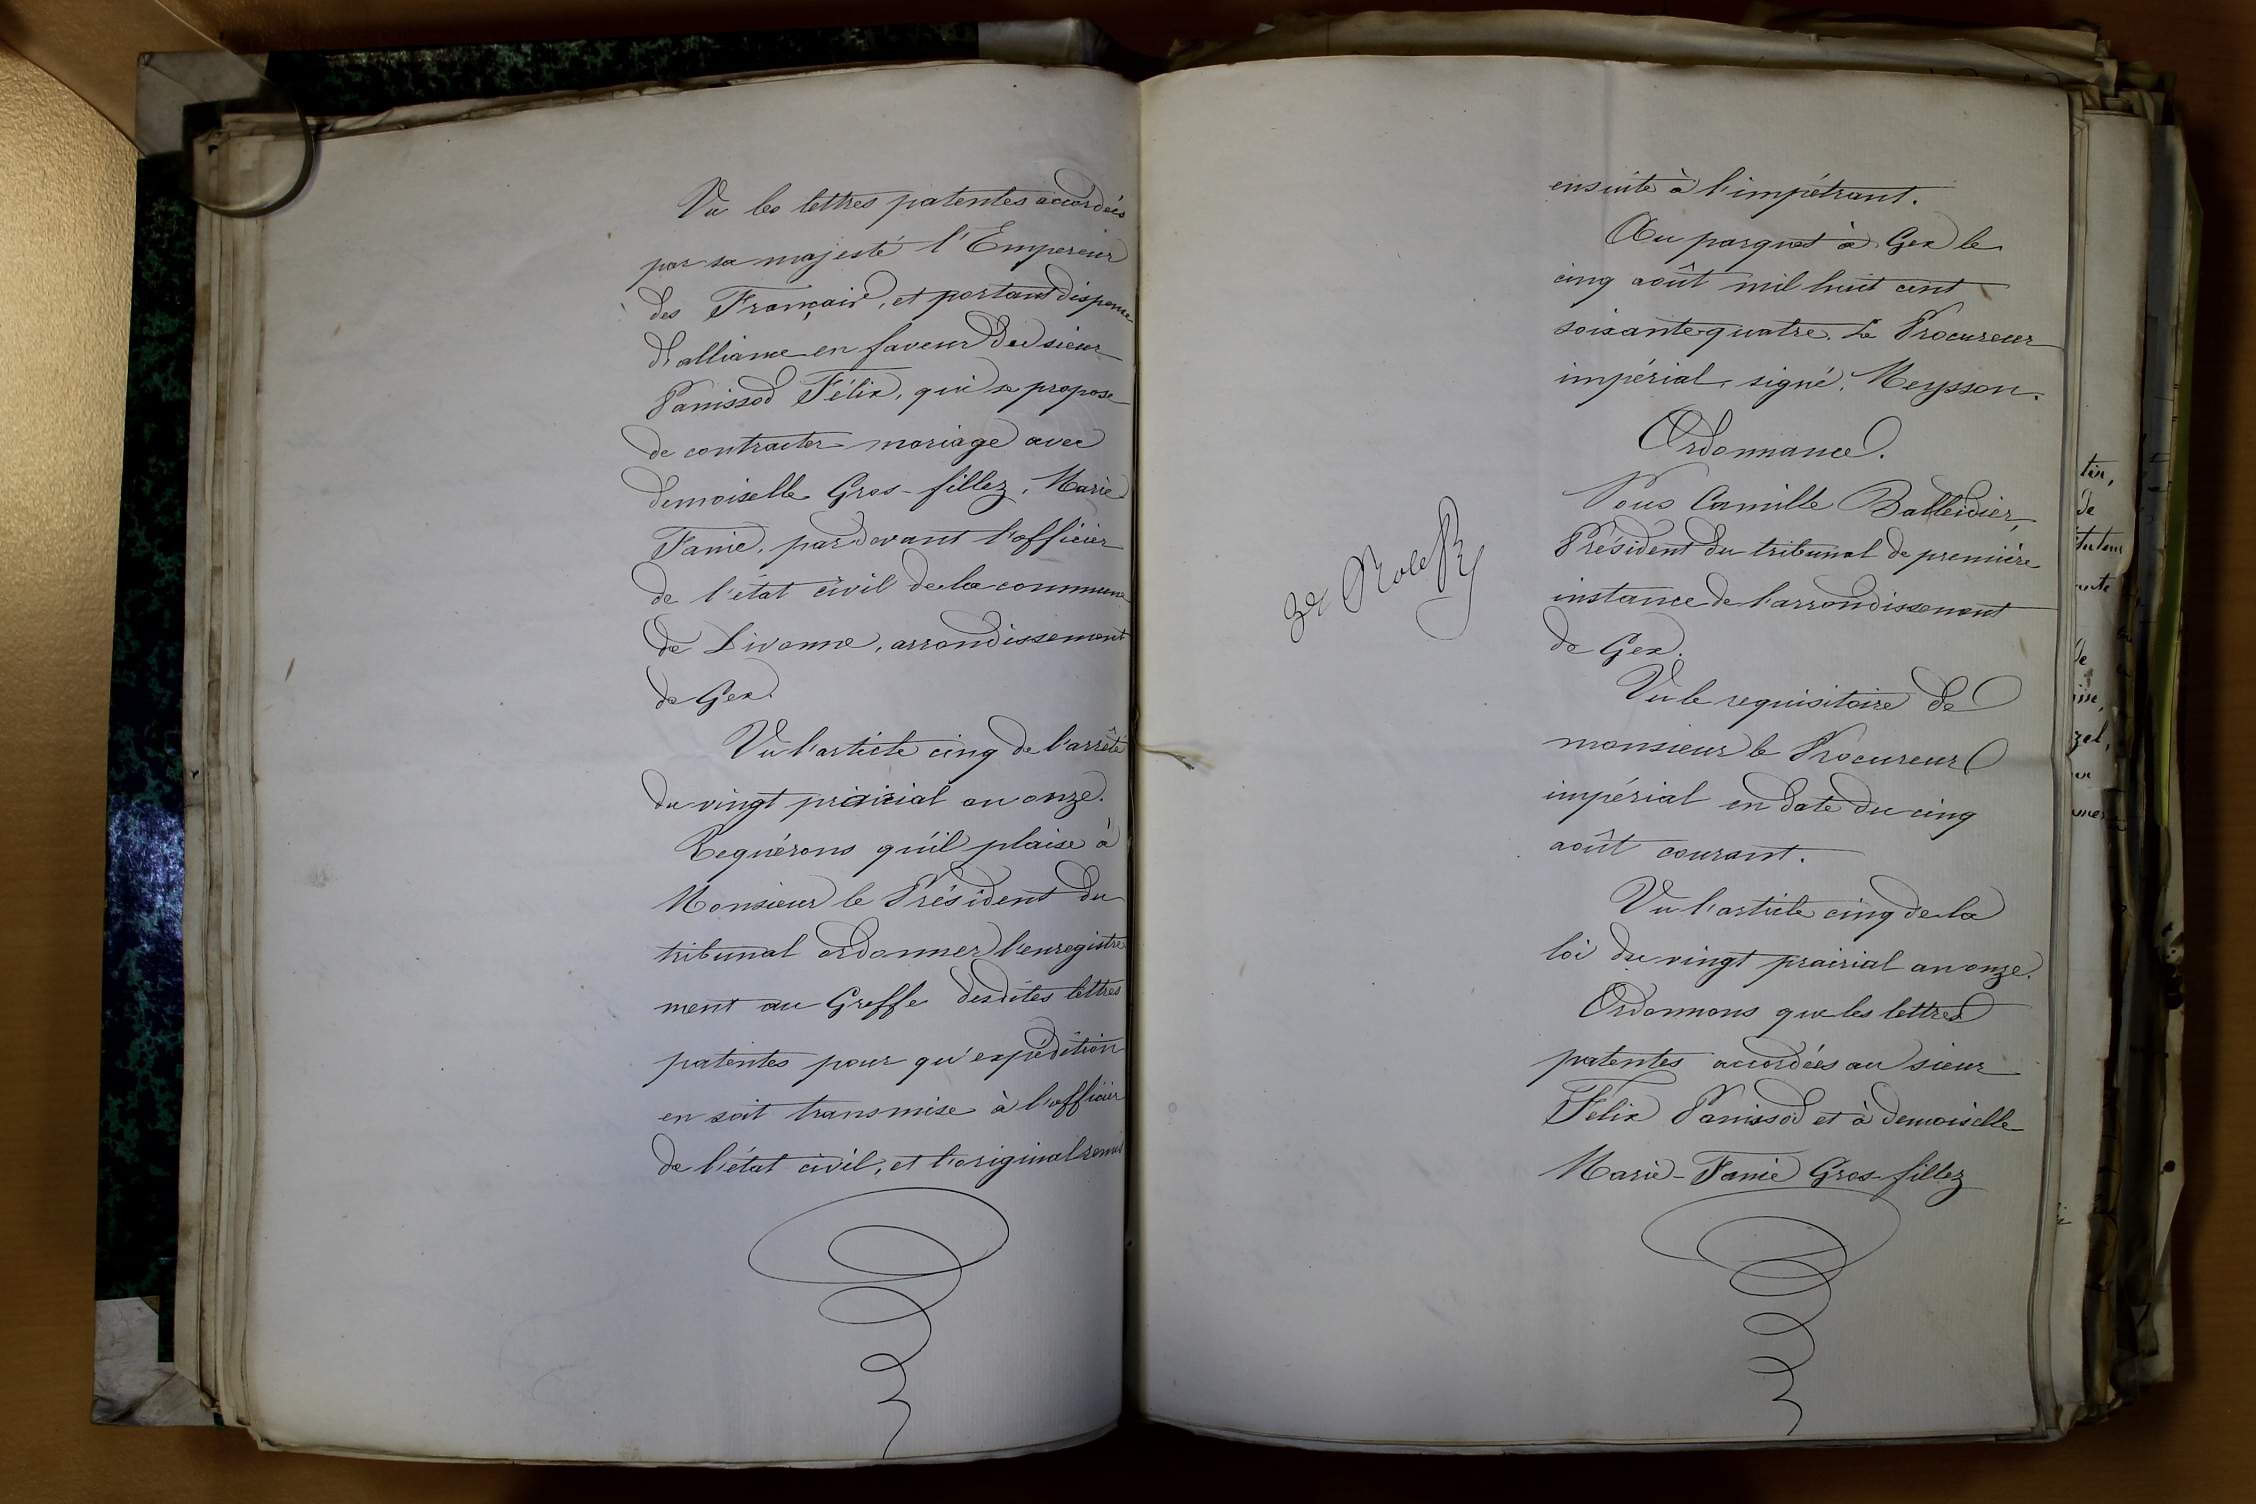 Vu les lettres patentes accordées
par sa majesté l'Empereur
des Français, et portant dispense
d'alliance en faveur du sieur
Panissod Félix, qui se propose
de contracter mariage avec
demoiselle Gros-fillez, Marie
Fanie, pardevant l'officier
de l'état civil de la commune
de Divonne, arrondissement
de Gex.
Vu l'article cinq de l'arrêté
du vingt prairial an onze.
Requérons qu'il plaise à
Monsieur le Président du
tribunal ordonner l'enregistre
ment au Greffe desdites lettres
patentes pour qu'expédition
en soit transmise à l'officier
de l'état civil, et l'original remis
ensuite à l'impétrant.
Au parquet à Gex le
cinq août mil huit cent
soixante quatre. Le Procureur
impérial, signé, Meysson.
Ordonnance.
Nous Camille Balleidier,
Président du tribunal de première
instance de l'arrondissement
de Gex.
Vu le requisitoire de
monsieur le Procureur
impérial en date du cinq
août courant.
Vu l'article cinq de la
loi du vingt prairial an onze.
Ordonnons que les lettres
patentes accordées au sieur
Félix Panissod et à demoiselle
Marie-Fanie Gros-fillez
Role
tin,
de
de
zel,